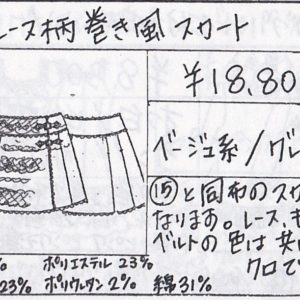 レース柄巻き風スカート
¥18,80
ベージュ系/グレ
⑮と同布のスカ
なります。レース、モ
ベルトの色は共に
クロで
% ポリエステル 23%
23% ポリウレタン 2% 綿31%